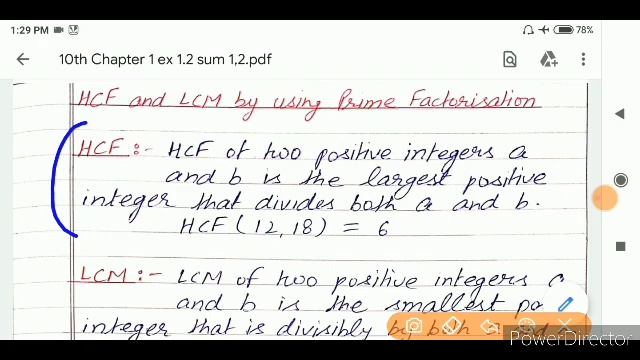 1:29 PM
78%
10th Chapter 1 ex 1.2 sum 1,2.pdf
HCF and LCM by using Prime Factorisation
HCF :- HCF of two positive integers a
and b is the largest positive
integer that divides both a and b.
HCF (12, 18) = 6
LCM :- LCM of two positive integers
and b is the smallest po
integer that is divisibly by both a and
PowerDirector